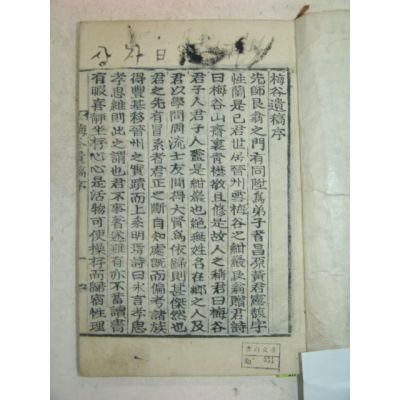 상자日
梅谷遺稿序
先師艮翁之門有同陞爲弟子者昌原黃君
性蘭是已君世居晉州雲梅谷之紺巖艮翁贈君詩
曰梅谷山齋裏靑襟敬且修是故人之稱君曰梅谷
君子人君子人盖是紺巖也絶無姓名在鄕之人及
君以學問周流士友間得大賢爲依歸則甚傑然也
君之先有冒系者君正之斷自知處旣而偏考諸族
得豊基移晉州之實蹟而上系明溝詩曰永言孝思
孝思維則此之謂也君不事著述雖有亦不蓄讀書
有眼喜靜坐存心心是活物可使操存而歸宿性理
梅谷遺稿序